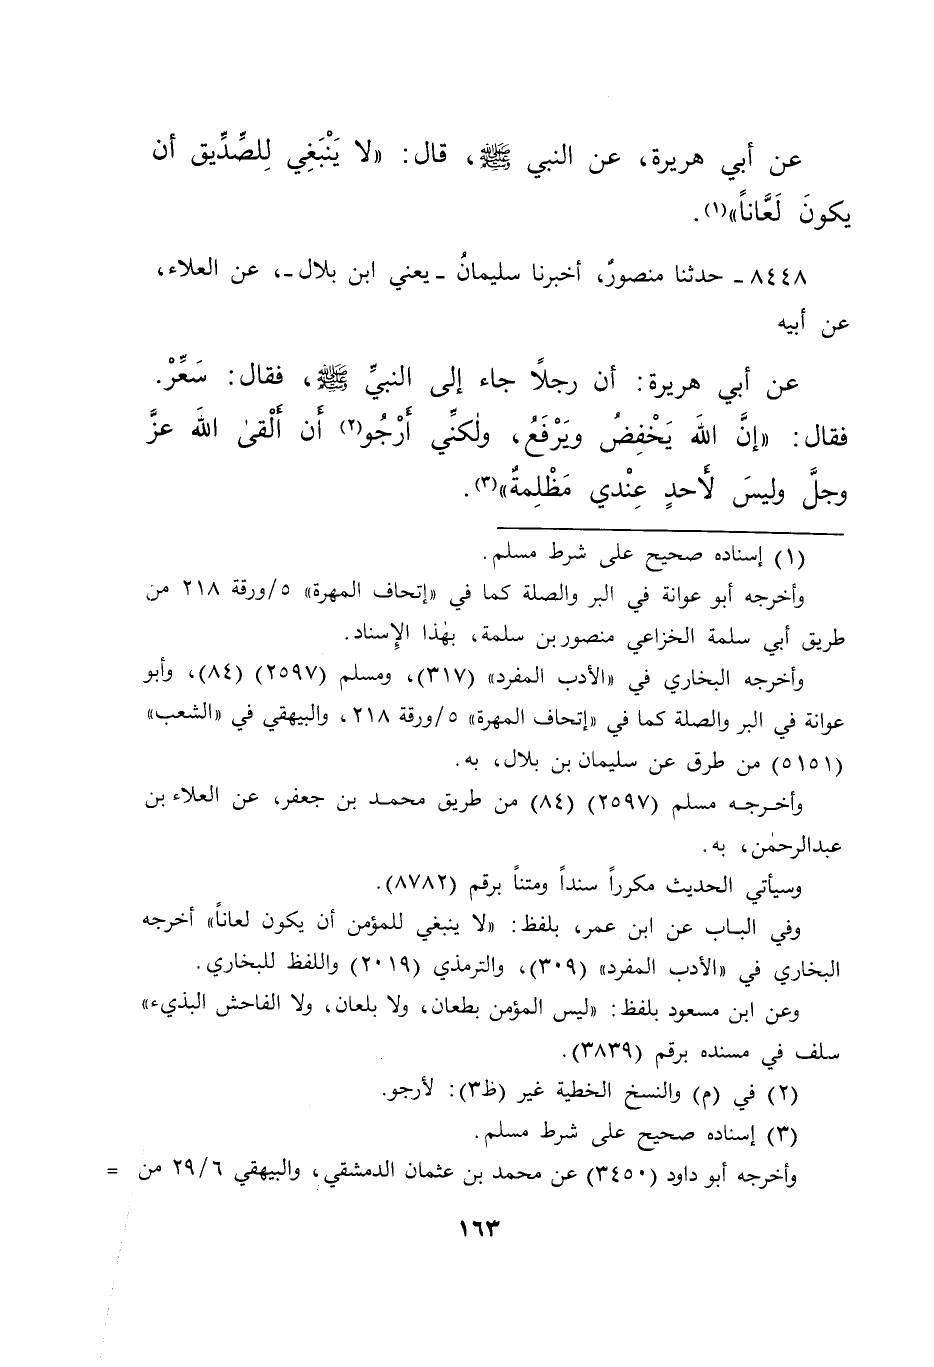 عن أبي هريرة، عن النبي ﷺ، قال: «لا يَنْبَغِي لِلصِّدِّيق أن
يكونَ لَعَّاناً»(١).
٨٤٤٨ ـ حدثنا منصورٌ، أخبرنا سليمانُ ـ يعني ابن بلال ـ، عن العلاء،
عن أبيه
عن أبي هريرة: أن رجلًا جاء إلى النبيِّ ﷺ، فقال: سَعِّرْ.
فقال: «إنَّ اللهَ يَخْفِضُ ويَرْفَعُ، ولٰكنِّي أَرْجُو(٢) أَن أَلْقىٰ اللهَ عزَّ
وجلَّ وليسَ لأَحدٍ عِنْدي مَظْلِمةٌ»(٣).
(١) إسناده صحيح على شرط مسلم.
وأخرجه أبو عوانة في البر والصلة كما في «إتحاف المهرة» ٥/ورقة ٢١٨ من
طريق أبي سلمة الخزاعي منصور بن سلمة، بهٰذا الإسناد.
وأخرجه البخاري في «الأدب المفرد» (٣١٧)، ومسلم (٢٥٩٧) (٨٤)، وأبو
عوانة في البر والصلة كما في «إتحاف المهرة» ٥/ورقة ٢١٨، والبيهقي في «الشعب»
(٥١٥١) من طرق عن سليمان بن بلال، به.
وأخرجه مسلم (٢٥٩٧) (٨٤) من طريق محمد بن جعفر، عن العلاء بن
عبدالرحمٰن، به.
وسيأتي الحديث مكرراً سنداً ومتناً برقم (٨٧٨٢).
وفي الباب عن ابن عمر، بلفظ: «لا ينبغي للمؤمن أن يكون لعاناً» أخرجه
البخاري في «الأدب المفرد» (٣٠٩)، والترمذي (٢٠١٩) واللفظ للبخاري.
وعن ابن مسعود بلفظ: «ليس المؤمن بطعان، ولا بلعان، ولا الفاحش البذيء»
سلف في مسنده برقم (٣٨٣٩).
(٢) في (م) والنسخ الخطية غير (ظ٣): لأرجو.
(٣) إسناده صحيح على شرط مسلم.
وأخرجه أبو داود (٣٤٥٠) عن محمد بن عثمان الدمشقي، والبيهقي ٢٩/٦ من =
١٦٣